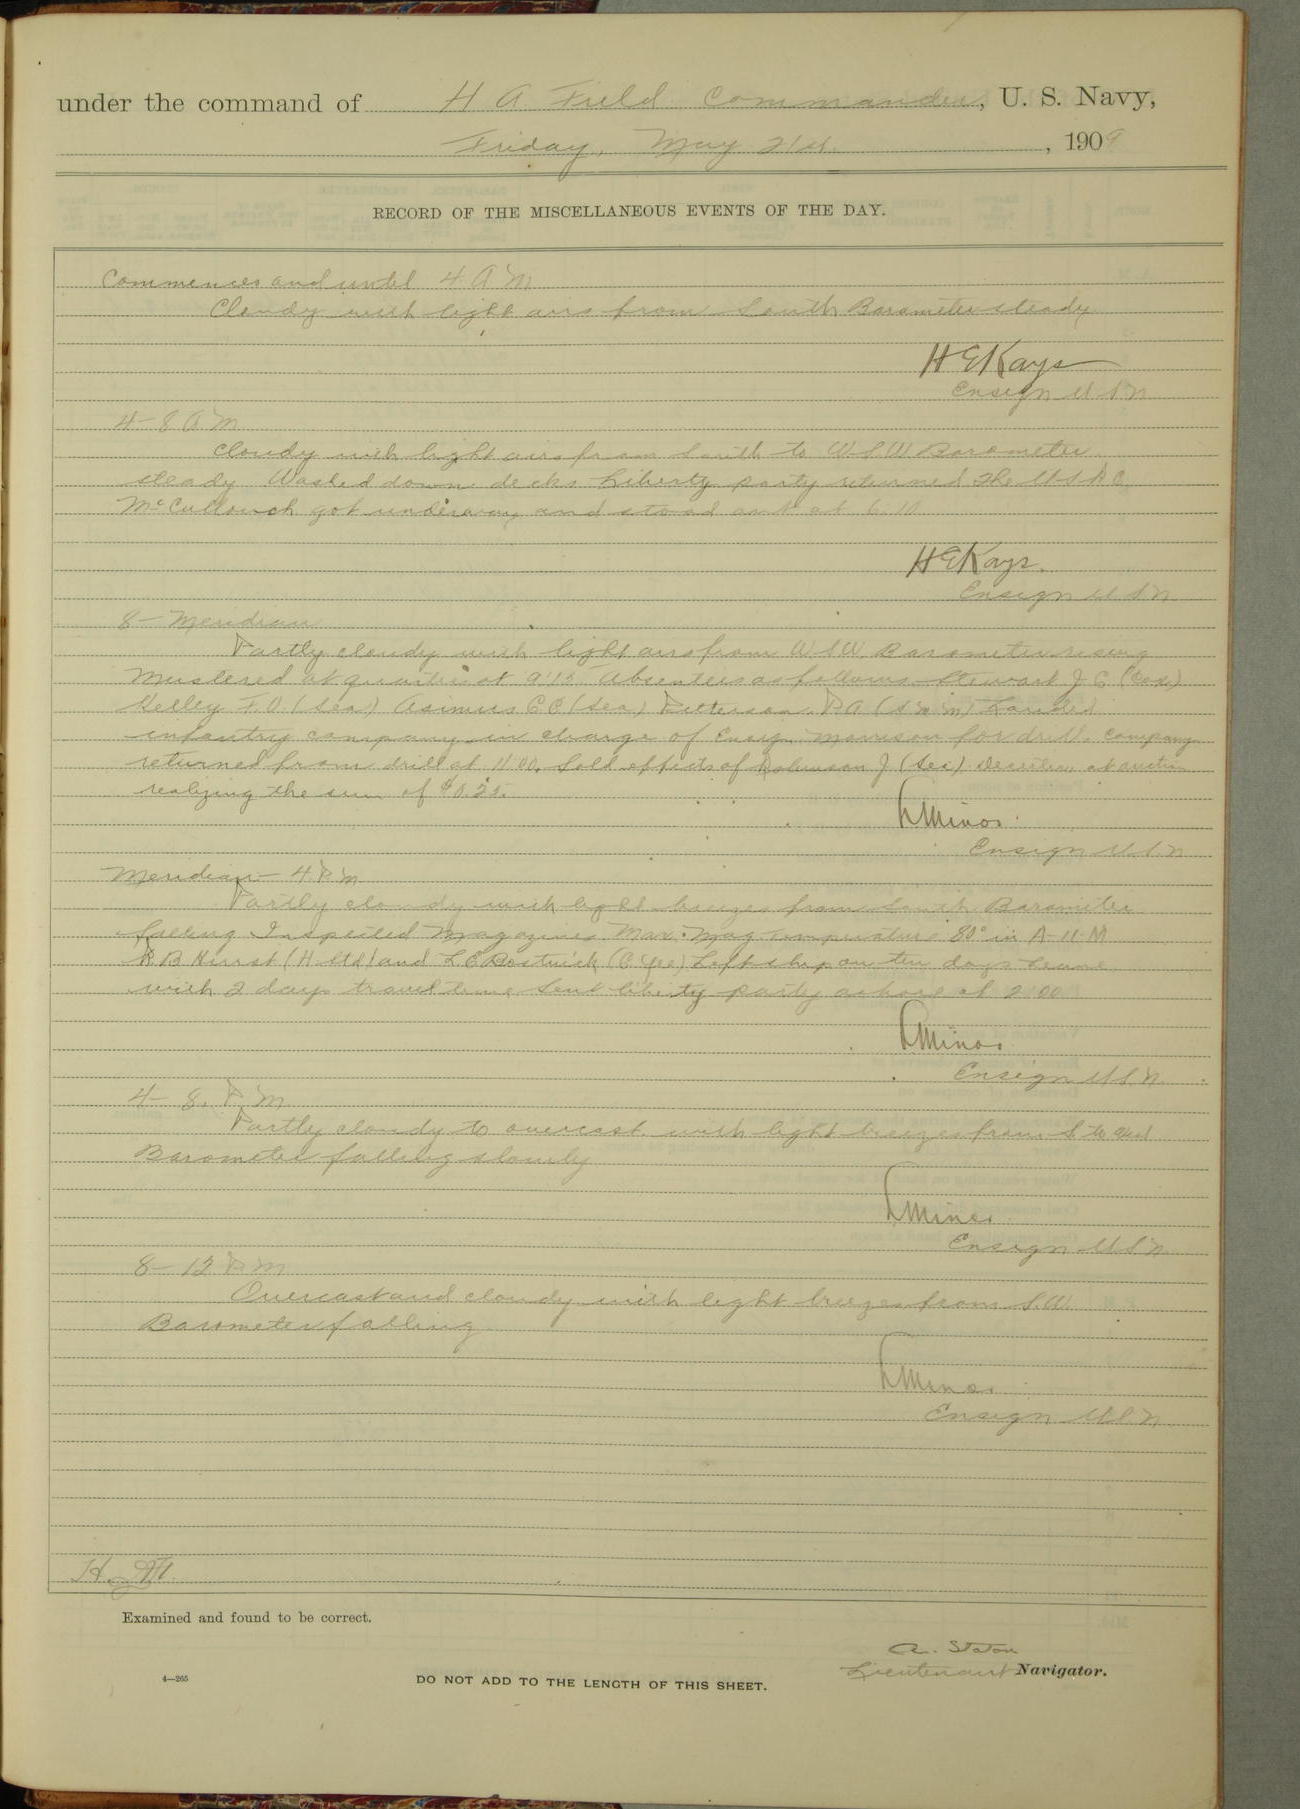 under the command of H A Field Commander, U. S. Navy,
Friday, May 21st, 1909
RECORD OF THE MISCELLANEOUS EVENTS OF THE DAY.
Commences and until 4 A M
Cloudy with light airs from South Barometer steady
H E Kays
Ensign U S N
4 - 8 A M
Cloudy with light airs from South to W S W Barometer
steady Washed down decks Liberty party returned The U S R C
McCullouch got underway and stood out at 6:10
H E Kays.
Ensign U S N
8 - Meridian
Partly cloudy with light airs from W S W Barometer rising
Mustered at quarters at 9:15 Absentees as follows Stewart J C (Cox)
Kelley F. O. (Sea) Asimus C C (Sea) Patterson P A Landed
infantry company in charge of Ensign Morrison for drill. Company
returned from drill at 11:00. Sold effects of Robinson J (Sea) Deserter, at auction
realizing the sum of
L Minor
Ensign U S N
Meridian - 4 P M
Partly cloudy with light breezes from South Barometer
falling Inspected Magazines. Max. Mag. temperature 80° in A-11-M
and L C Bostwick Left ship on ten days leave
with 2 days travel time Sent liberty party ashore at 2:00
L Minor
Ensign U S N.
4 - 8. P M
Partly cloudy to overcast with light breezes from S to
Barometer falling slowly
L Minor
Ensign U S N
8 - 12 P M
Overcast and cloudy with light breezes from S.W.
Barometer falling
L Minor
Ensign U S N.
Examined and found to be correct.
A. Staton
Lieutenant Navigator.
4—265
DO NOT ADD TO THE LENGTH OF THIS SHEET.